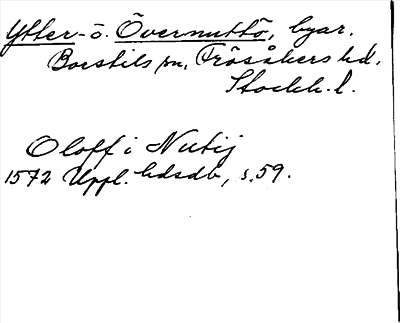 Ytter- o. Övernuttö, byar.
Borstils sn, Frösåkers hd.
Stockh. l.
Oloff i Nutij
1572 Uppl. hdsdb, s. 59.